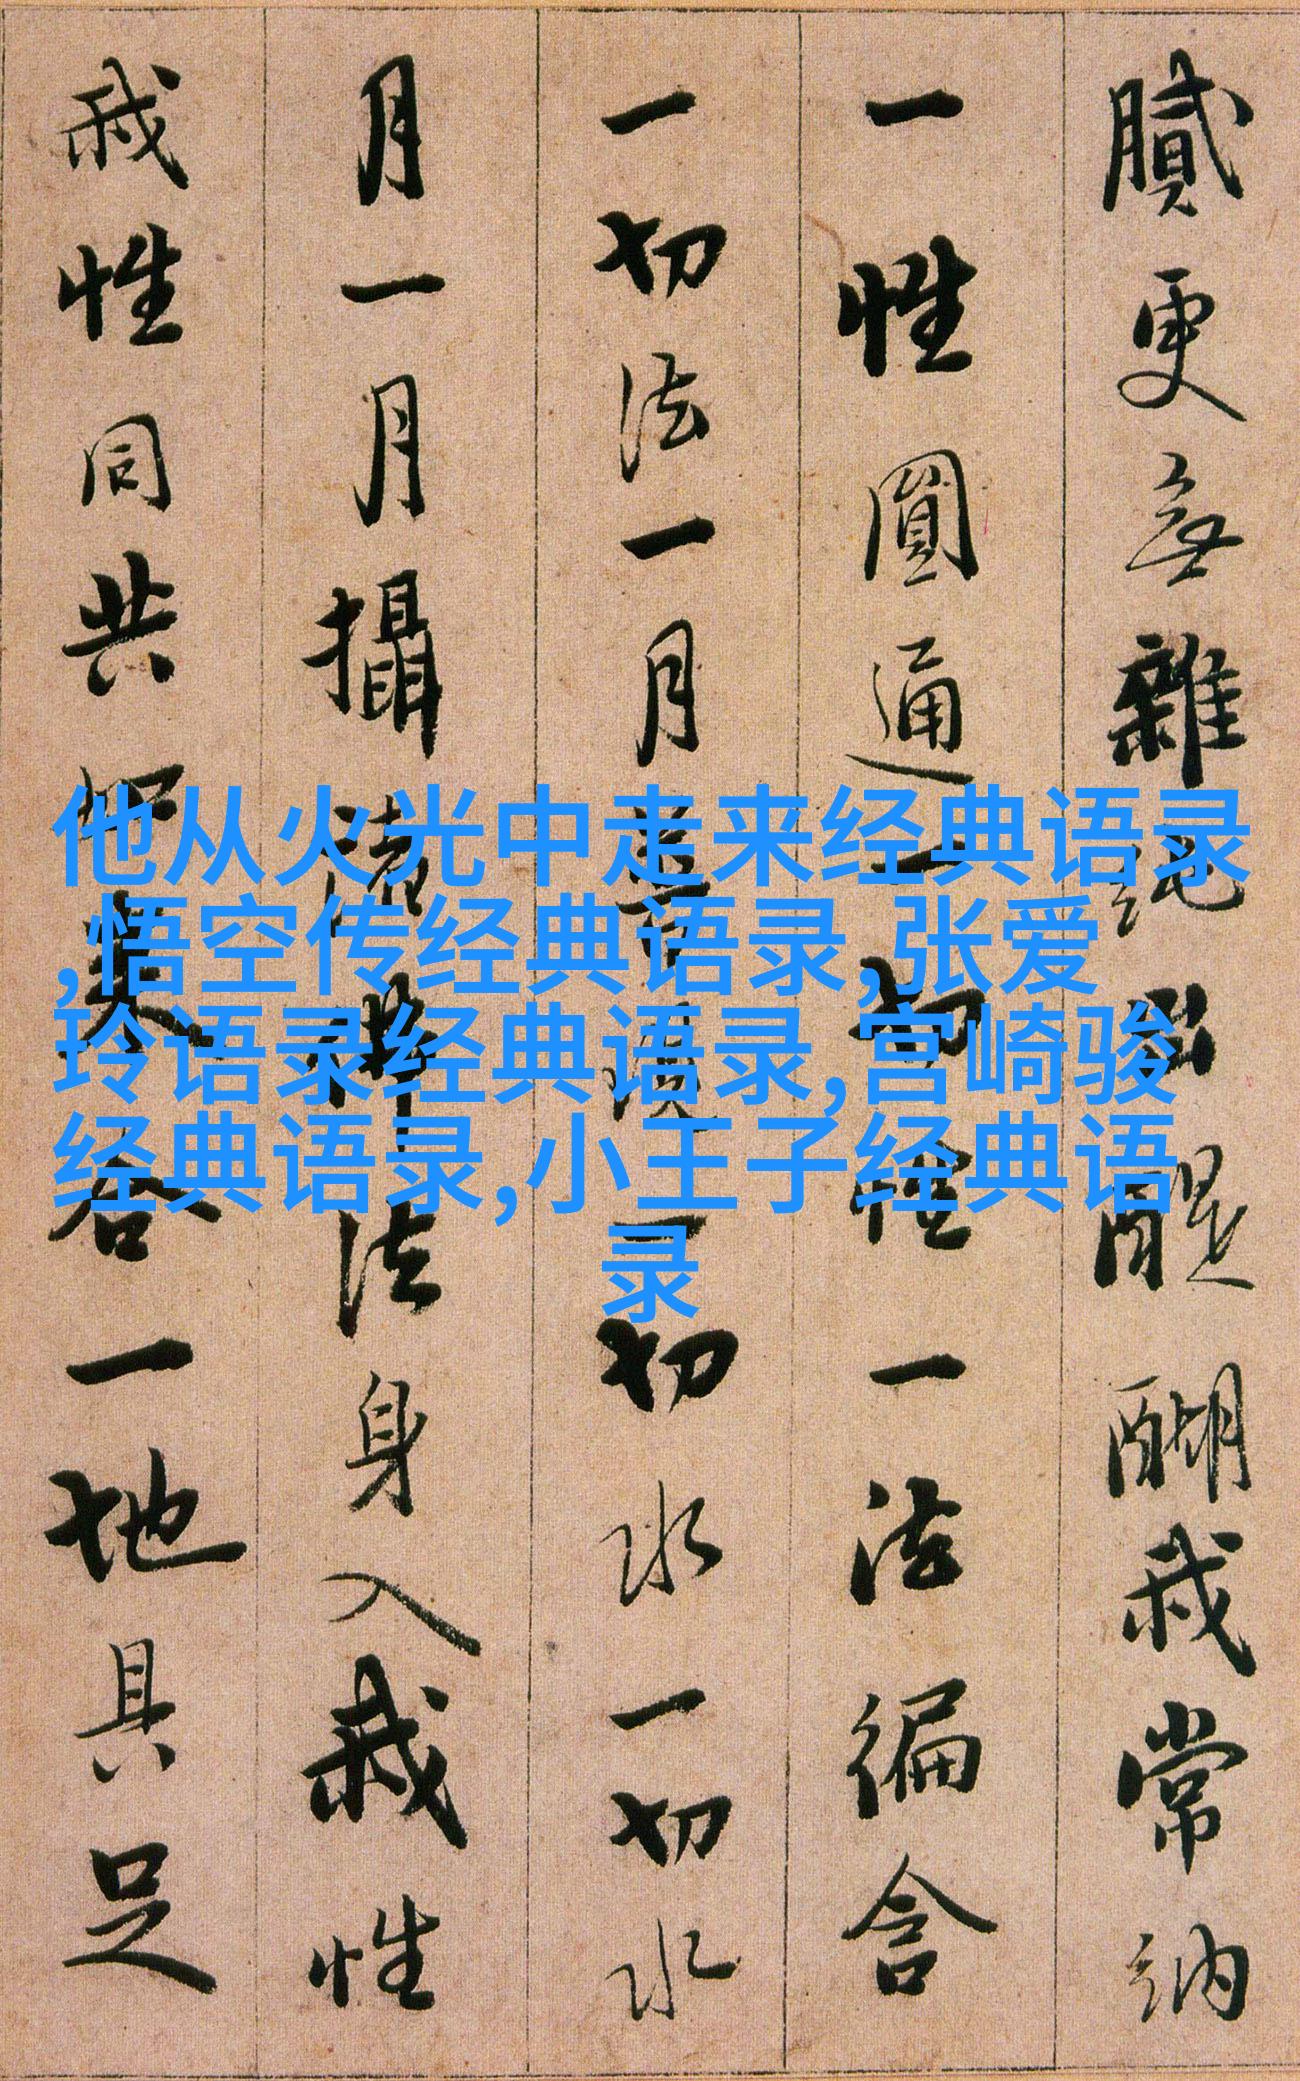 膩更無雜純出醍醐我常納
一性圓通一切性一法徧含
一切法一月普現一切水一切水
月一月攝諸佛法身入我性
我性同共如來合一地具足
他从火光中走来经典语录
,悟空传经典语录,张爱
玲语录经典语录,宫崎骏
经典语录,小王子经典语
录